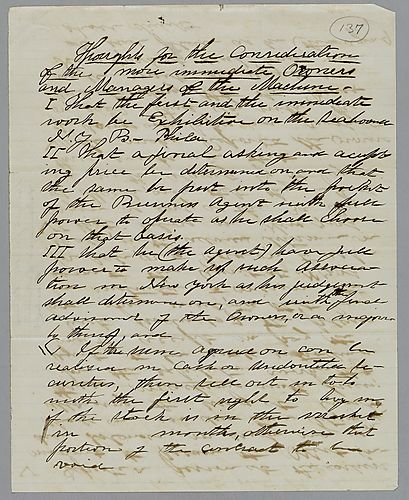 137
Thoughts for the Consideration
of the more immediate Owners
and Managers of the Machine.
I That the first and the immediate
work be Exhibition on the Seaboard
N.Y. B. Phila
II That a final asking and accept
ing price be determined on and that
the same be put into the pocket
of the Business Agent with full
power to operate as he shall choose
on that basis.
III That he (the Agent) have full
power to make such Associa
tion in New York as his judgement
shall determine on, and with the final
advisement of the Owners, or a majori
ty thereof, and
If the sum agreed on can be
realised in Cash or Undoubted Se
curities, then sell out in toto
with the first right to buy in
if the stock is in the market
in months, otherwise that
portion of the contract to be
void